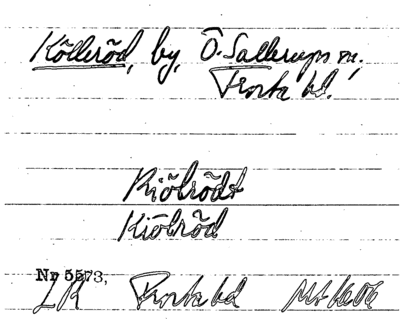 Kölleröd, by, Ö. Sallerups sn,
Frosta hd.
Kiölrödt
Kiölröd
Nr 5573,
LR Frosta hd